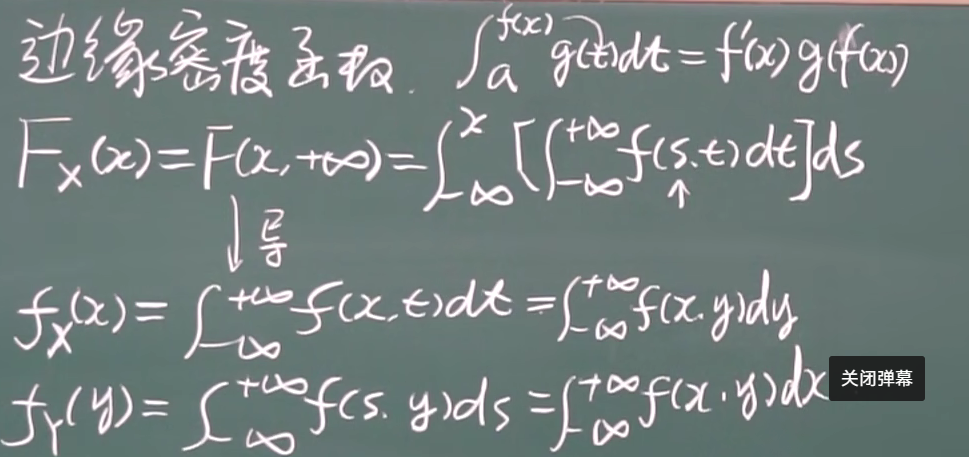 边缘密度函数. ∫_a^{f(x)} g(t)dt = f'(x) g(f(x))
F_X(x) = F(x, +∞) = ∫_{-∞}^{x} [∫_{-∞}^{+∞} f(s.t)dt]ds
↑
↓ 导
f_X(x) = ∫_{-∞}^{+∞} f(x,t)dt = ∫_{-∞}^{+∞} f(x.y)dy
f_Y(y) = ∫_{-∞}^{+∞} f(s.y)ds = ∫_{-∞}^{+∞} f(x.y)dx
关闭弹幕